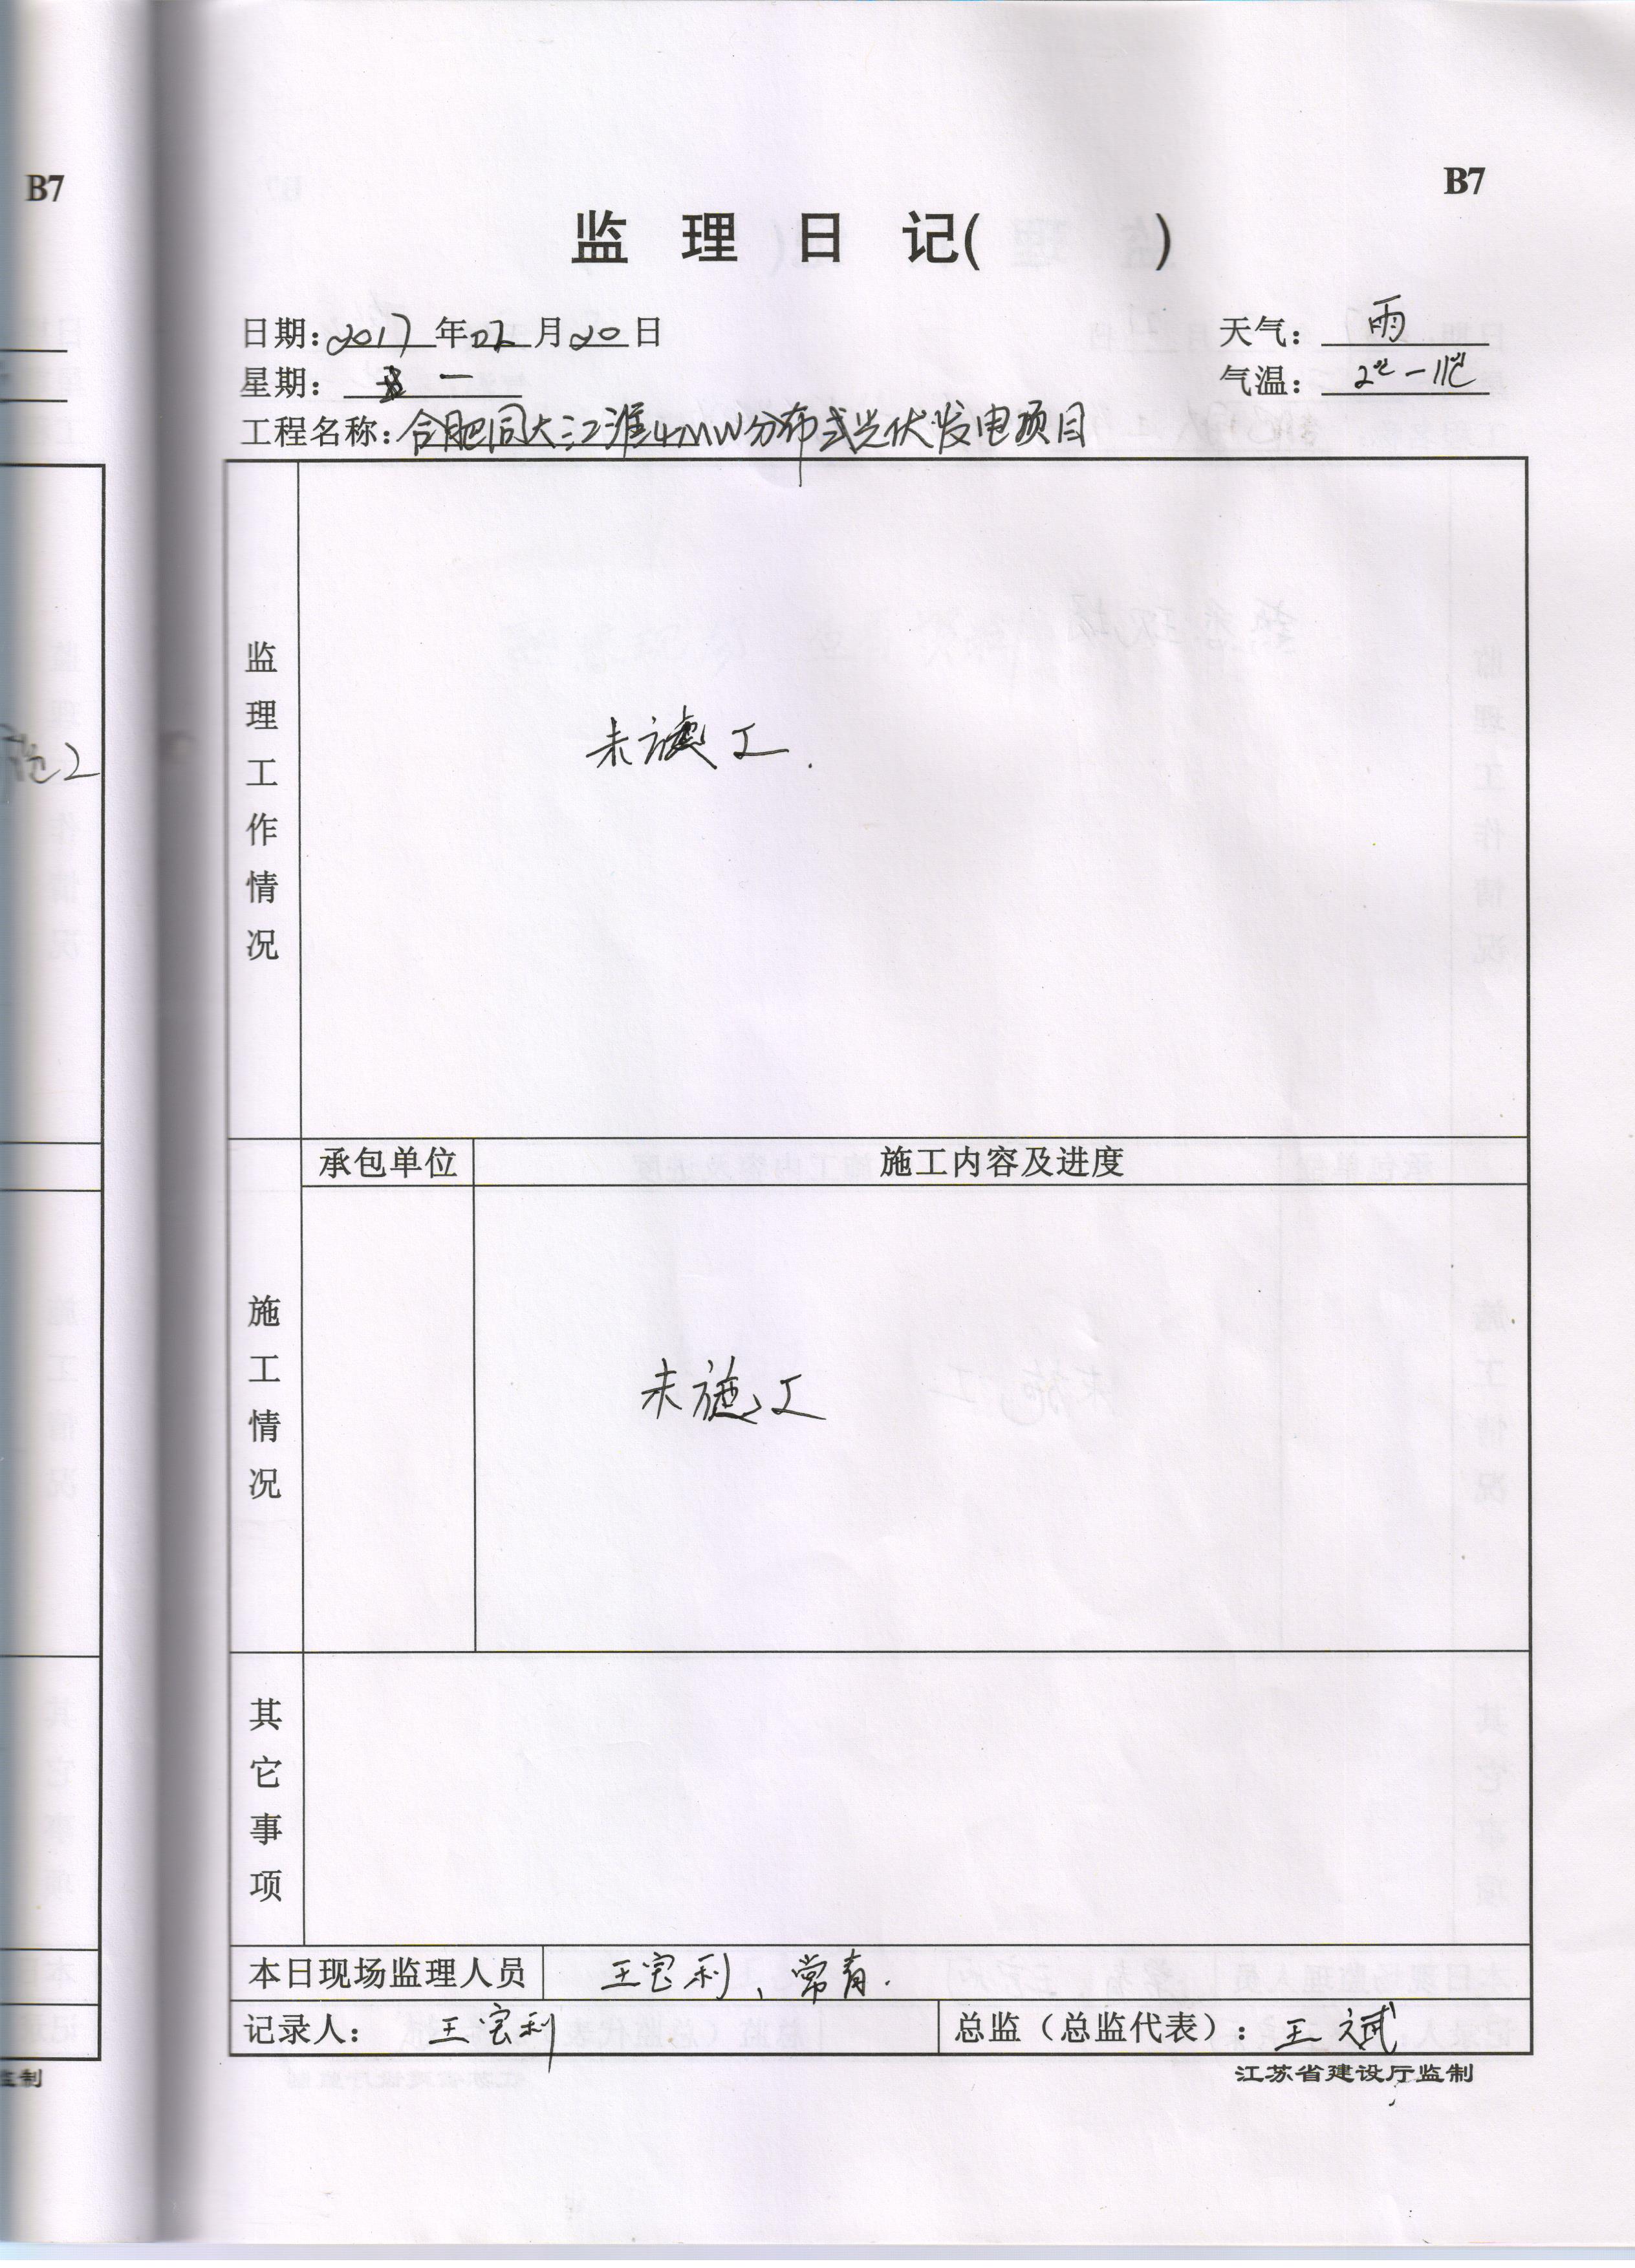 B7
B7
监理日记( )
日期:2017年02月20日
天气:雨
星期:一
气温:2℃-11℃
工程名称:合肥同大江淮4MW分布式光伏发电项目
监理工作情况
未施工.
施工
承包单位
施工内容及进度
施工情况
未施工
其它事项
本日现场监理人员
王宝利、常青.
记录人:王宝利
总监(总监代表):王斌
监制
江苏省建设厅监制